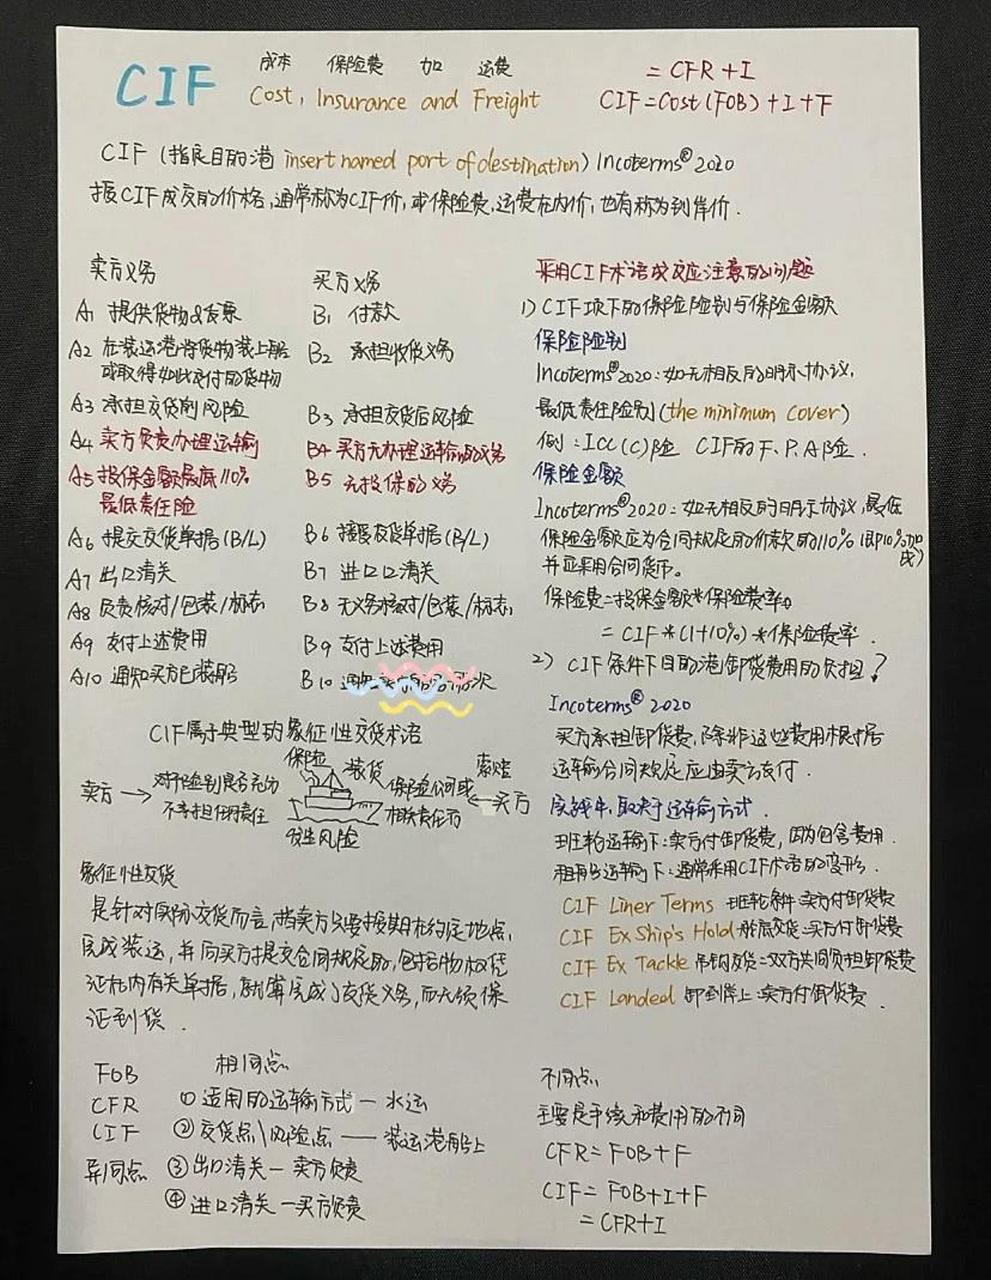 CIF
成本 保险费 加 运费
Cost, Insurance and Freight
= CFR + I
CIF = Cost (FOB) + I + F
CIF (指定目的港 insert named port of destination) Incoterms® 2020
按CIF成交的价格,通常称为CIF价,或保险费、运费在内价,也有称为到岸价.
卖方义务
A1 提供货物&发票
A2 在装运港将货物装上船
或取得如此交付的货物
A3 承担交货前风险
A4 卖方负责办理运输
A5 投保金额最底110%
最低责任险
A6 提交交货单据(B/L)
A7 出口清关
A8 负责核对/包装/标志
A9 支付上述费用
A10 通知买方已装船
买方义务
B1 付款
B2 承担收货义务
B3 承担交货后风险
B4 买方无办理运输的义务
B5 无投保的义务
B6 接受交货单据(B/L)
B7 进口清关
B8 无义务核对/包装/标志
B9 支付上述费用
B10
CIF属于典型的象征性交货术语
卖方 → 对于险别是否充分
不承担任何责任
保险
装货
发生风险
保险公司或
相关责任方
索赔
← 买方
象征性交货
是针对实际交货而言,指卖方只要按期在约定地点,
完成装运,并向买方提交合同规定的,包括物权凭
证在内有关单据,就算完成了交货义务,而无须保
证到货.
采用CIF术语成交应注意的问题
1) CIF项下的保险险别与保险金额
保险险别
Incoterms® 2020:如无相反的明示协议,
最低责任险别 (the minimum cover)
例:ICC(C)险 CIF的F.P.A险.
保险金额
Incoterms® 2020:如无相反的明示协议,最低
保险金额应为合同规定的价款的110% (即10%加成)
并应采用合同货币。
保险费=投保金额*保险费率
= CIF*(1+10%)*保险费率.
2) CIF条件下目的港卸货费用的负担?
Incoterms® 2020
买方承担卸货费,除非这些费用根据
运输合同规定应由卖方支付.
实践中,取决于运输方式.
班轮运输下:卖方付卸货费,因为包含费用.
租船运输下:通常采用CIF术语的变形.
CIF Liner Terms 班轮条件:卖方付卸货费
CIF Ex Ship's Hold 舱底交货:买方付卸货费
CIF Ex Tackle 吊钩交货:双方共同负担卸货费
CIF Landed 卸到岸上:卖方付卸货费.
FOB
CFR
CIF
异同点
相同点
① 适用的运输方式 — 水运
② 交货点\风险点 —— 装运港船上
③ 出口清关 — 卖方负责
④ 进口清关 — 买方负责
不同点
主要是手续和费用的不同
CFR = FOB + F
CIF = FOB + I + F
= CFR + I